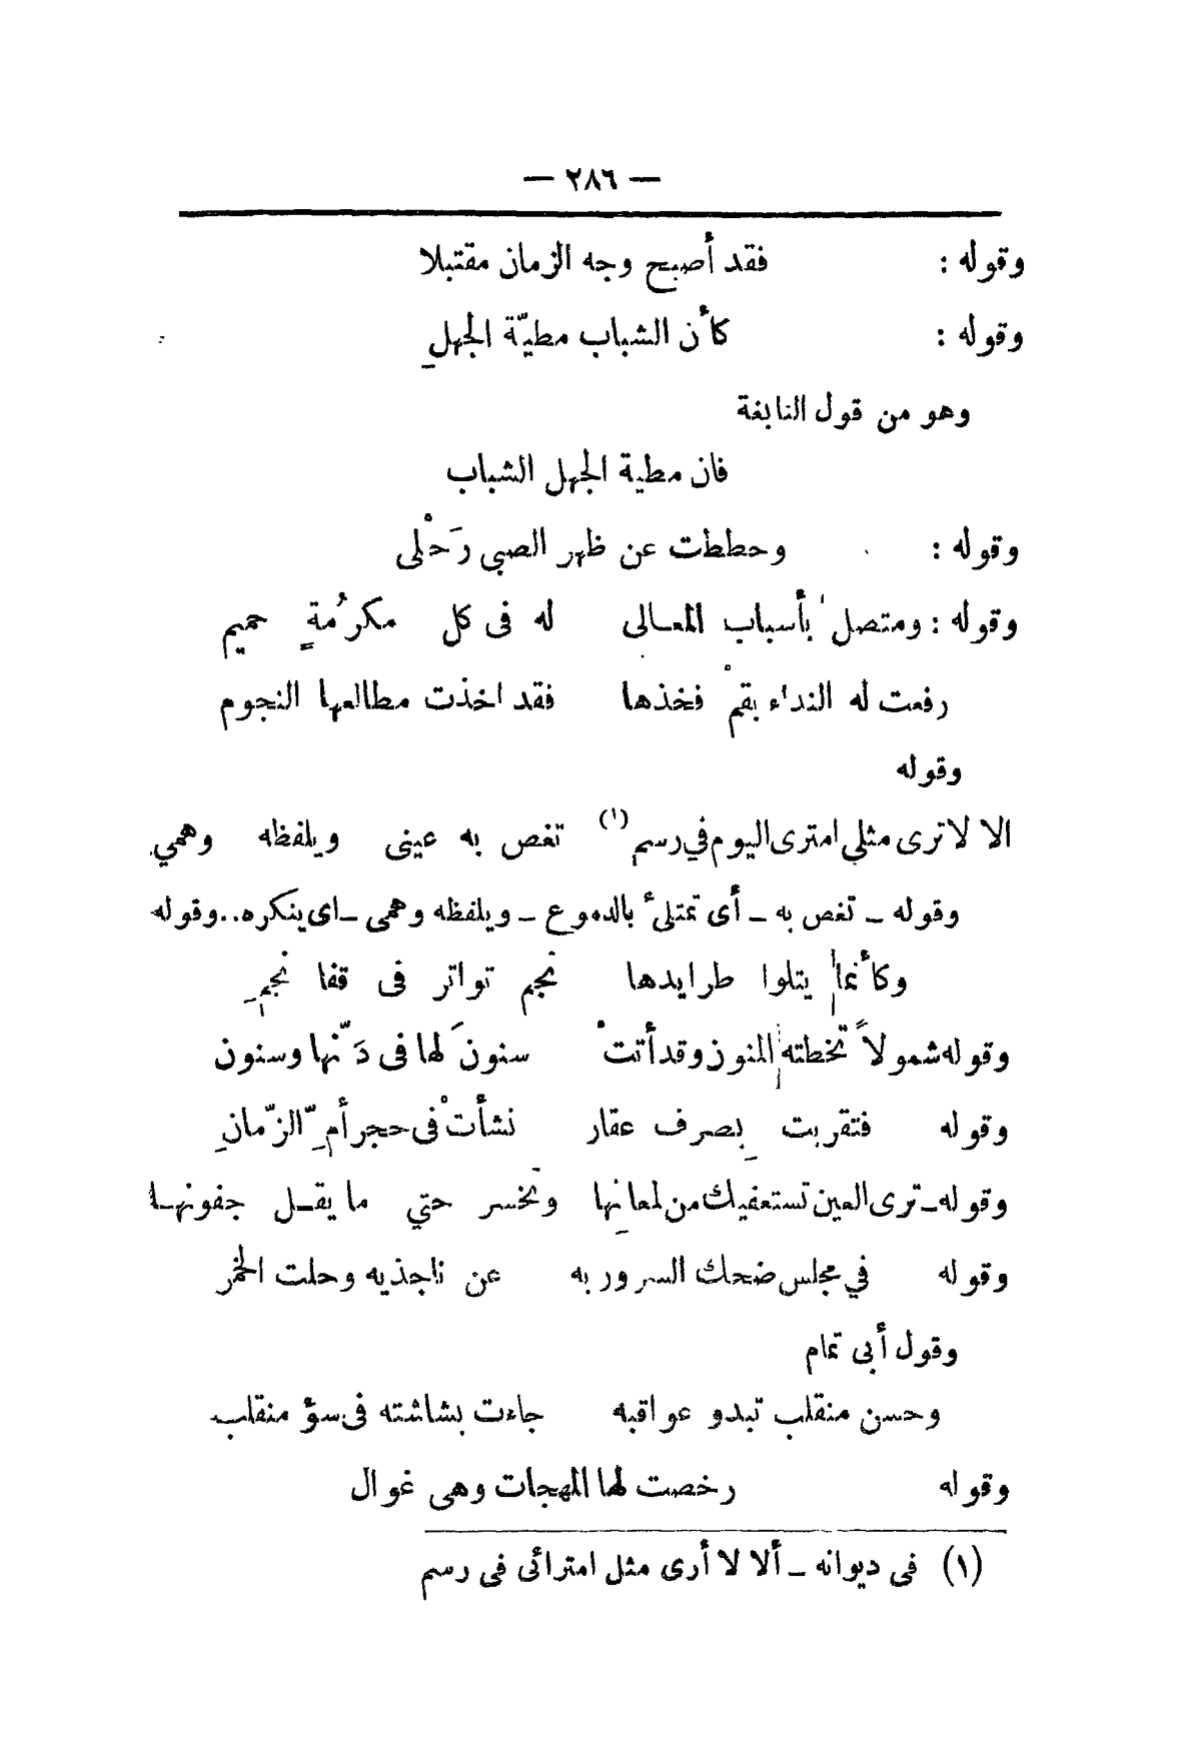 — ٢٨٦ —
وقوله : فقد أصبح وجه الزمان مقتبلا
وقوله : كأن الشباب مطيّة الجهلِ
وهو من قول النابغة
فان مطية الجهل الشباب
وقوله : وحططت عن ظهر الصبى رَحْلى
وقوله : ومتصل بأسباب المعالى له فى كل مكرُمةٍ حميم
رفعت له النداء بقمْ فخذها فقد اخذت مطالعها النجوم
وقوله
الا لا ترى مثلي امترى اليوم في رسم (١) تغص به عينى ويلفظه وهمي
وقوله ـ تغص به ـ أى تمتلئ بالدموع ـ ويلفظه وهمى ـ اى ينكره.. وقوله
وكأنما يتلوا طرايدها نجم تواتر فى قفا نجمِ
وقوله شمولاً تخطته المنون وقد أتتْ سنونَ لها فى دَنّها وسنون
وقوله فتقربت بِصرف عقار نشأتْ فى حجر أمِّ الزّمانِ
وقوله ـ ترى العين تستعفيك من لمعانِها وتخسر حتي ما يقـل جفونهـا
وقوله في مجلس ضحك السرور به عن ناجذيه وحلت الخمر
وقول أبى تمام
وحسن منقلب تبدو عواقبه جاءت بشاشته فى سؤ منقلب
وقوله رخصت لها المهجات وهى غوال
(١) فى ديوانه ـ ألا لا أرى مثل امترائى فى رسم